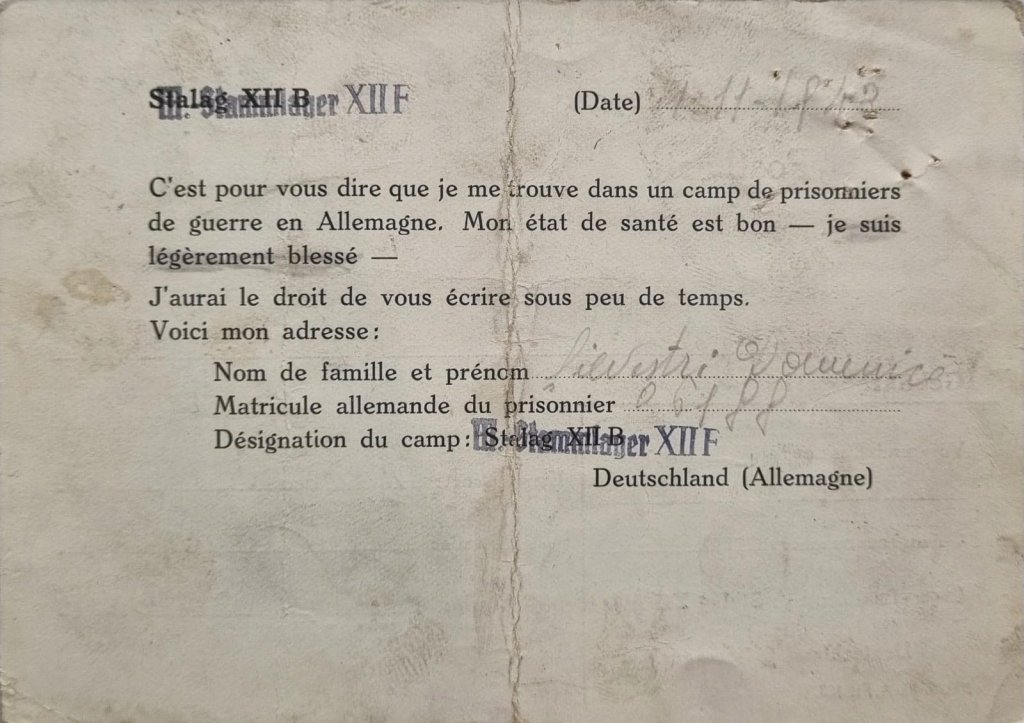 Stalag XII B M. Stammlager XII F (Date)
C'est pour vous dire que je me trouve dans un camp de prisonniers
de guerre en Allemagne. Mon état de santé est bon — je suis
légèrement blessé —
J'aurai le droit de vous écrire sous peu de temps.
Voici mon adresse:
Nom de famille et prénom Silvestri Domenico
Matricule allemande du prisonnier
Désignation du camp: Stalag XII B M. Stammlager XII F
Deutschland (Allemagne)